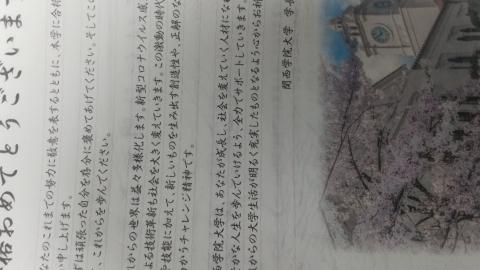 格おめでとうございます
なたのこれまでの努力に敬意を表するとともに、本学に合格
い申し上げます。
ずは頑張った自分を存分に褒めてあげてください。そしてこ
、これからを歩んでください。
からの世界は益々多様化します。新型コロナウイルス感
よる技術革新も社会を大きく変えていきます。この激動の時代
や技能に加えて、新しいものを生み出す創造性や、正解のな
かうチャレンジ精神です。
西学院大学は、あなたが成長し、社会を変えていく人材にな
かな人生を歩んでいけるよう、全力でサポートしていきます。
れからの大学生活が明るく充実したものとなるよう心からお祈
関西学院大学 学長